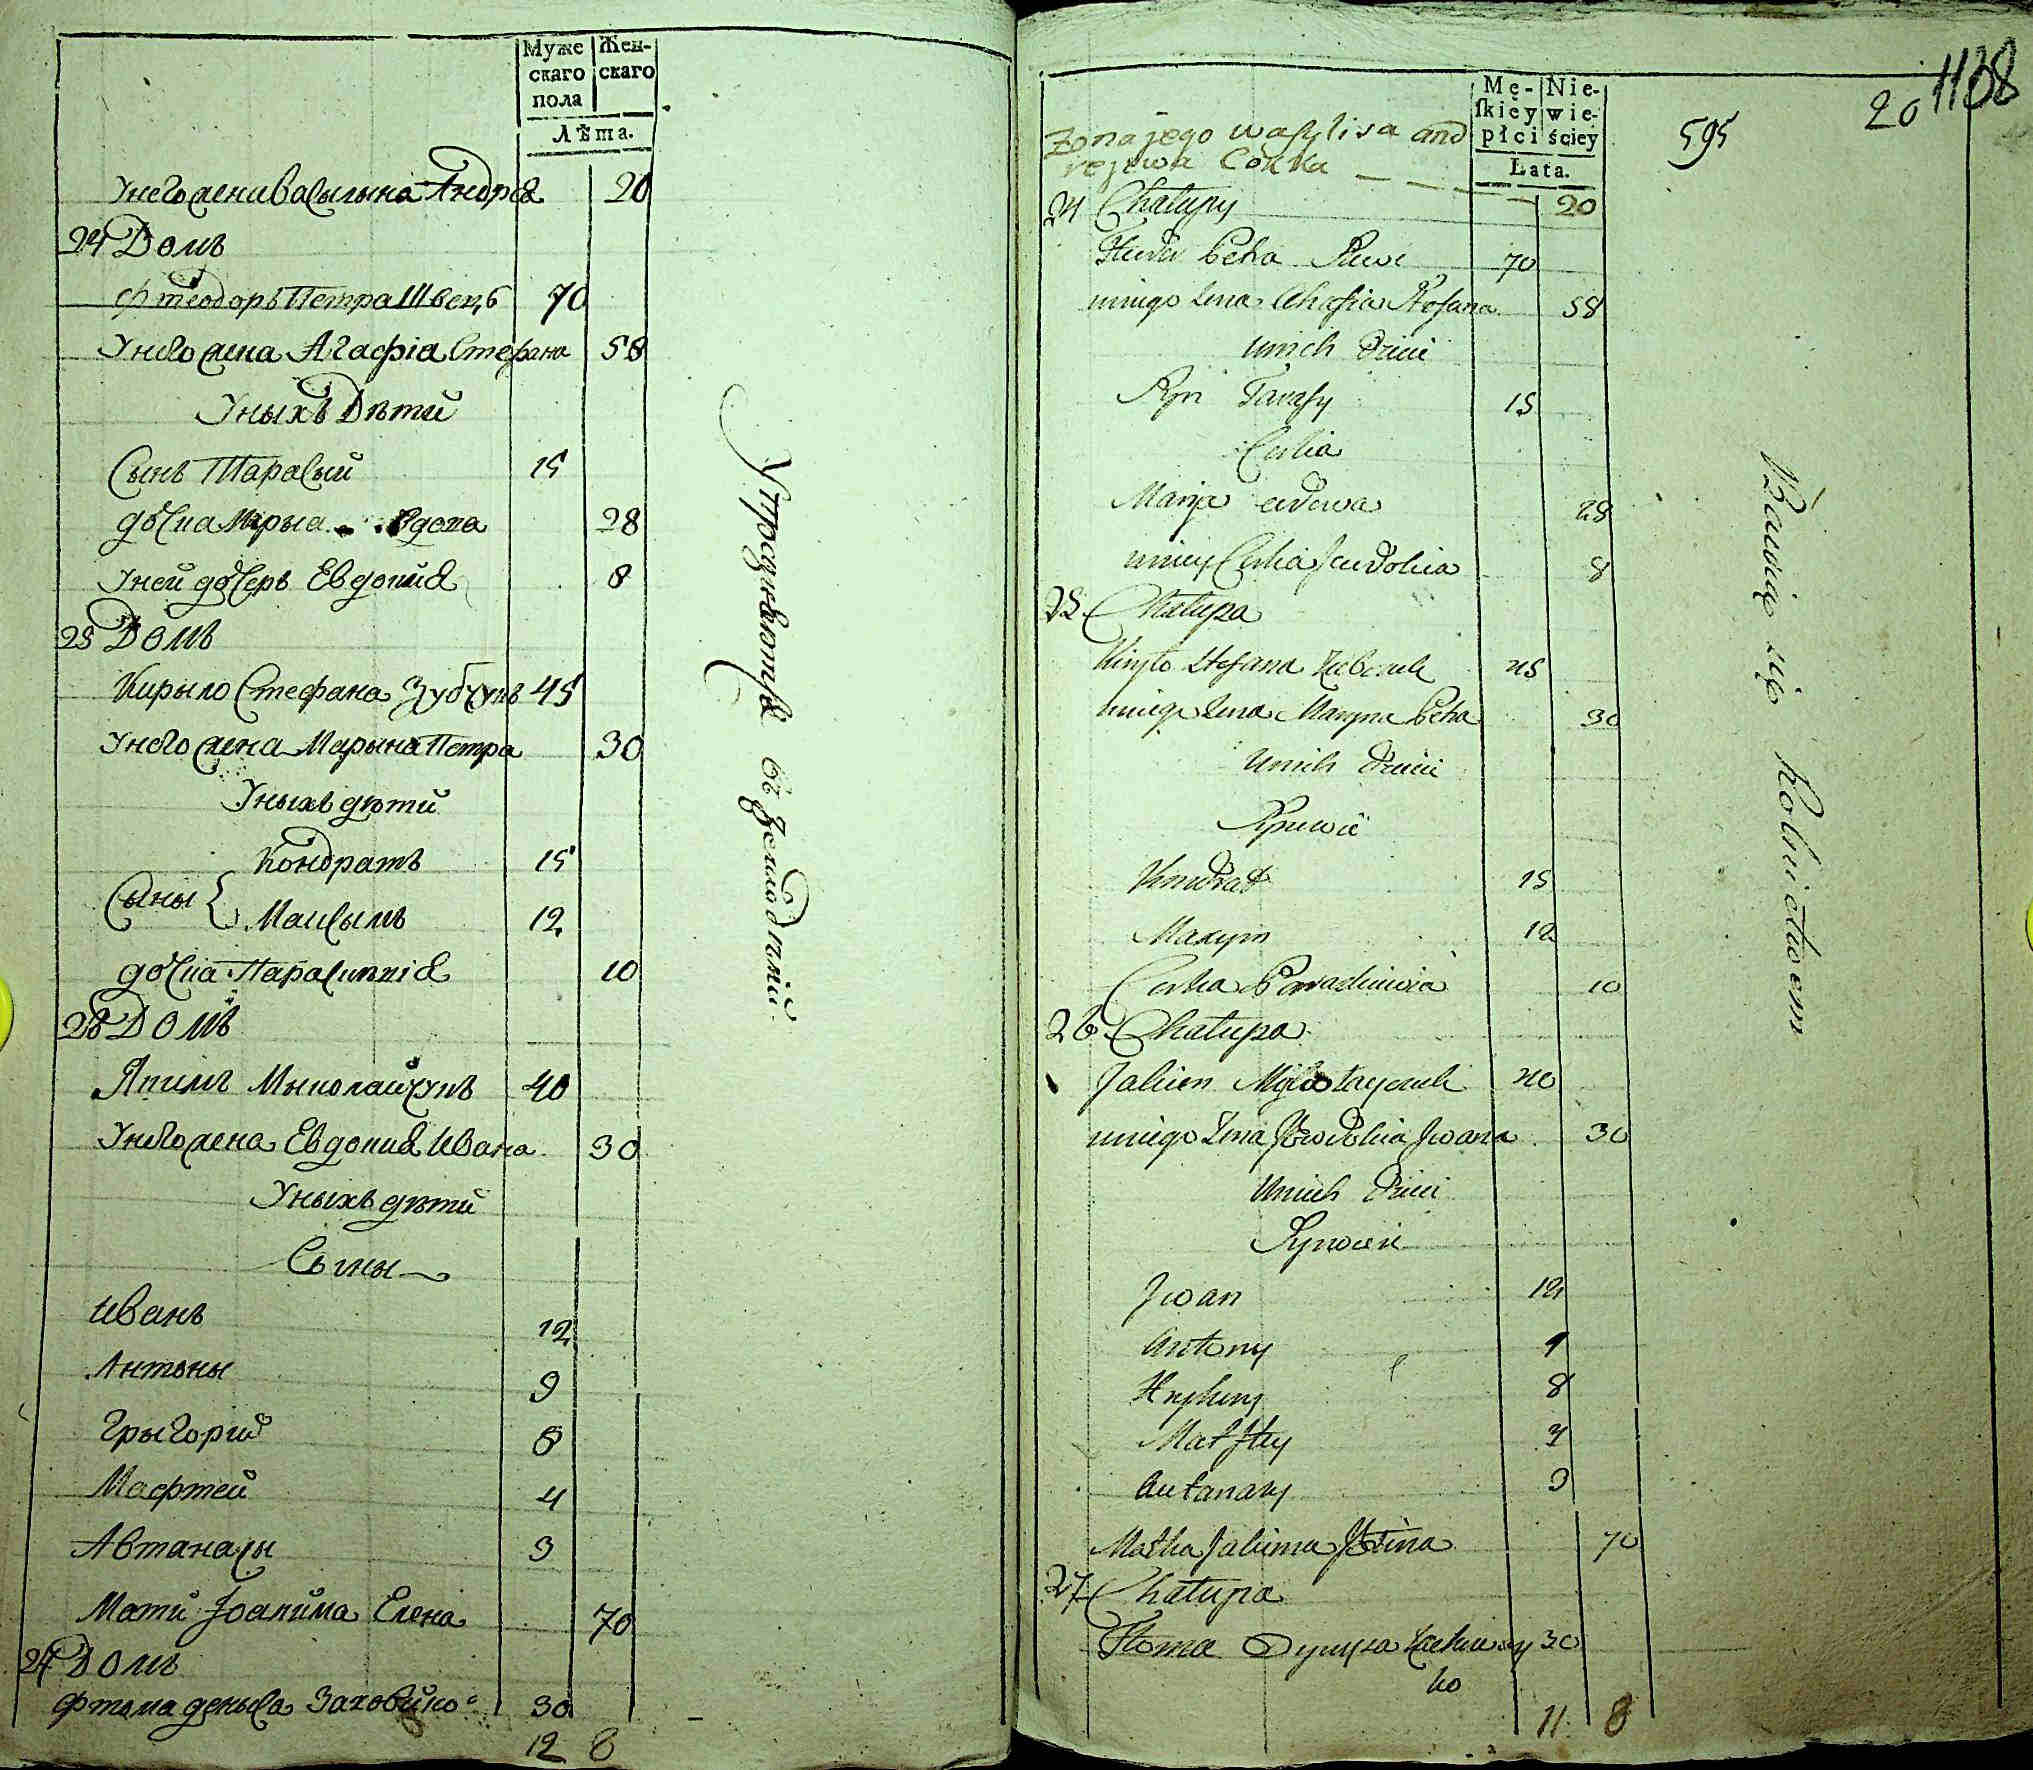 Муже Жен-
скаго скаго
пола
Лѣта.
Унего жена Васылына Андрея 20
24 Домъ
Фтеодоръ Петра Швецъ 70
Унего жена Агафія Стефана 58
Уныхъ Дѣти
Сынъ Тарасый 15
дочка Марыа Вдова 28
Уней дочеръ Евдокия 8
25 Домъ
Кирыло Стефана Зубчукъ 45
Унего жена Марына Петра 30
Уныхъ дѣти
Кондратъ 15
Сыны
Максымъ 12
дочка Параскивія 10
26 Домъ
Якимъ Мыколайчукъ 40
Унего жена Евдокия Ивана 30
Уныхъ дѣти
Сыны
Иванъ 12
Антоны 9
Грыгорий 8
Мафтей 4
Автанасы 3
Мати Іоакима Елена 70
27 Домъ
Фтома деныса Заховайко 30
12 8
Упражняются въ Земледѣліи
1138
20
595
Mę- Nie-
ſkiey wie-
płci ściey
Lata.
Zona jego Waſylisa and
rejewa Corka
20
24 Chałupy
70
uniego Zona Ahafia Stefana 58
Unich Dzieci
Syn Tarasy 15
Curka
Marya wdowa 28
uniey Curka Jewdokia 8
25 Chałupa
Kiryło Stefana Zubczuk 45
uniego Zona Maryna Petra 30
Unich Dzieci
Synowie
Kondrat 15
Maxym 12
Curka Paraskiewia 10
26 Chałupa
Jakim Mykołayczuk 40
uniego Zona Jewdokia Jwana 30
Unich Dzieci
Synowie
Jwan 12
Antony 9
Hryhory 8
Matftey 4
Autanasy 3
Matka Jakima 70
27 Chałupa
Ftoma 30
ko
11 8
Bawią się Rolnictwem